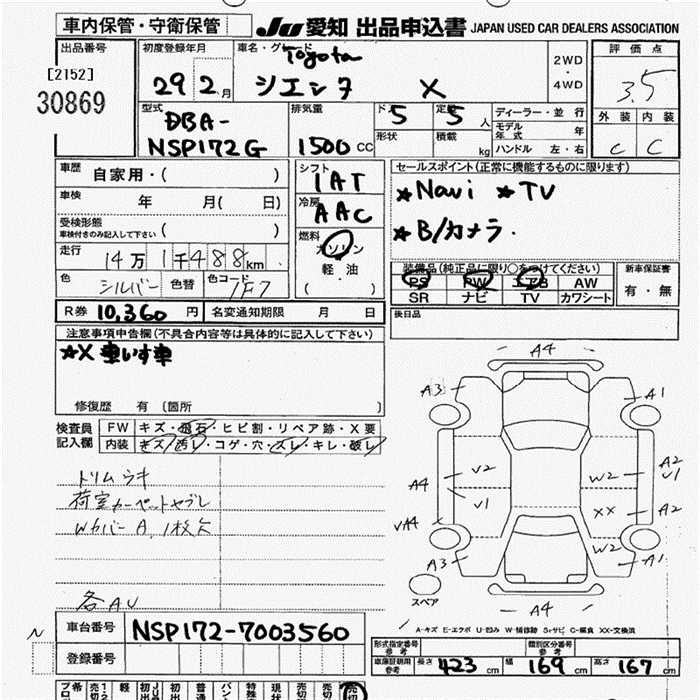 車内保管・守衛保管 JU 愛知 出品申込書 JAPAN USED CAR DEALERS ASSOCIATION
出品番号 初度登録年月 車名・グレード Toyota 2WD・4WD 評価点
[2152]
30869 29 2月 シエンタ X 3.5
型式 排気量 ドア 5 定員 5人 ディーラー・並行 外装 内装
DBA-NSP172G 1500CC 形状 積載 kg モデル年式 年 C C
ハンドル 左・右
車歴 自家用・( ) シフト セールスポイント(正常に機能するものに限ります)
1AT
車検 年 月( 日) 冷房 ★Navi ★TV
AAC
受検形態 車検付きのみ記入して下さい ( ) 燃料 ★B/カメラ.
走行 14万1千488km ガソリン・軽油
( )
装備品(純正品に限り○をつけてください) 新車保証書
色 シルバー 色替 色コード 1F7 PS PW エアB AW 有・無
SR ナビ TV カワシート
R券 10,360円 名変通知期限 月 日 後日品
注意事項申告欄(不具合内容等は具体的に記入して下さい)
★X 車いす車
修復歴 有 (箇所 )
検査員記入欄 FW キズ・飛石・ヒビ割・リペア跡・X要
内装 キズ・汚レ・コゲ・穴・スレ・キレ・破レ
トリムウキ
荷室カーペットヤブレ
Wカバー A, 1枚欠
各AU
A4
A3 A1
A4 V2 W2 A2 V1
V1 XX A2
VA4 W2
A3 A1
スペア A4
A-キズ E-エクボ U-凹み W-補修跡 S-サビ C-腐食 XX-交換済
N 車台番号 NSP172-7003560
登録番号
形式指定番号 参考 類別区分番号 参考
車庫証明用 参考 長さ 423cm 幅 169cm 高さ 167cm